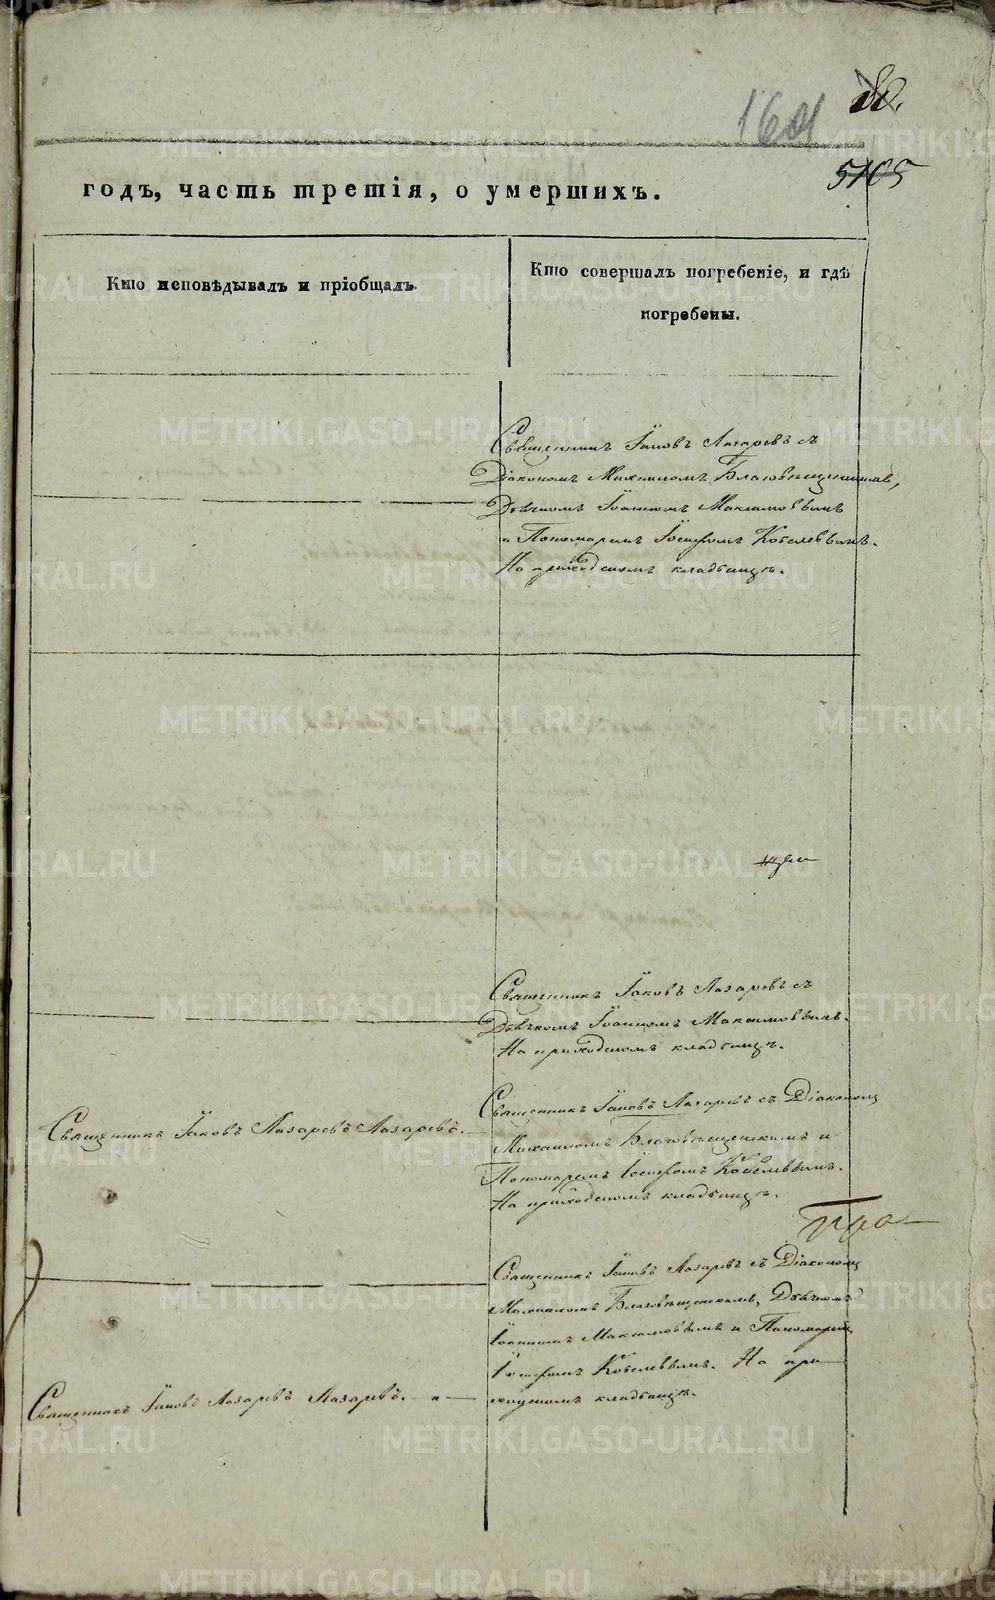 5105
годъ, часть третія, о умершихъ.
Кто исповѣдывалъ и пріобщалъ.
Кто совершалъ погребеніе, и гдѣ
погребены.
Священникъ Іаковъ Лазаревъ съ
Діакономъ Михаиломъ Благовѣщенскимъ,
Дьячкомъ Іоанномъ Максимовымъ
и Пономаремъ Іосифомъ Кобелевымъ.
На приходскомъ кладбищѣ.
Священникъ Іаковъ Лазаревъ съ
Дьячкомъ Іоанномъ Максимовымъ.
На приходскомъ кладбищѣ.
Священникъ Іаковъ Лазаревъ Лазаревъ.
Священникъ Іаковъ Лазаревъ съ Діакономъ
Михаиломъ Благовѣщенскимъ и
Пономаремъ Іосифомъ Кобелевымъ.
На приходскомъ кладбищѣ.
Священникъ Іаковъ Лазаревъ Лазаревъ.
Священникъ Іаковъ Лазаревъ съ Діакономъ
Михаиломъ Благовѣщенскимъ, Дьячкомъ
Іоанномъ Максимовымъ и Пономаремъ
Іосифомъ Кобелевымъ. На при-
ходскомъ кладбищѣ.
METRIKI.GASO-URAL.RU